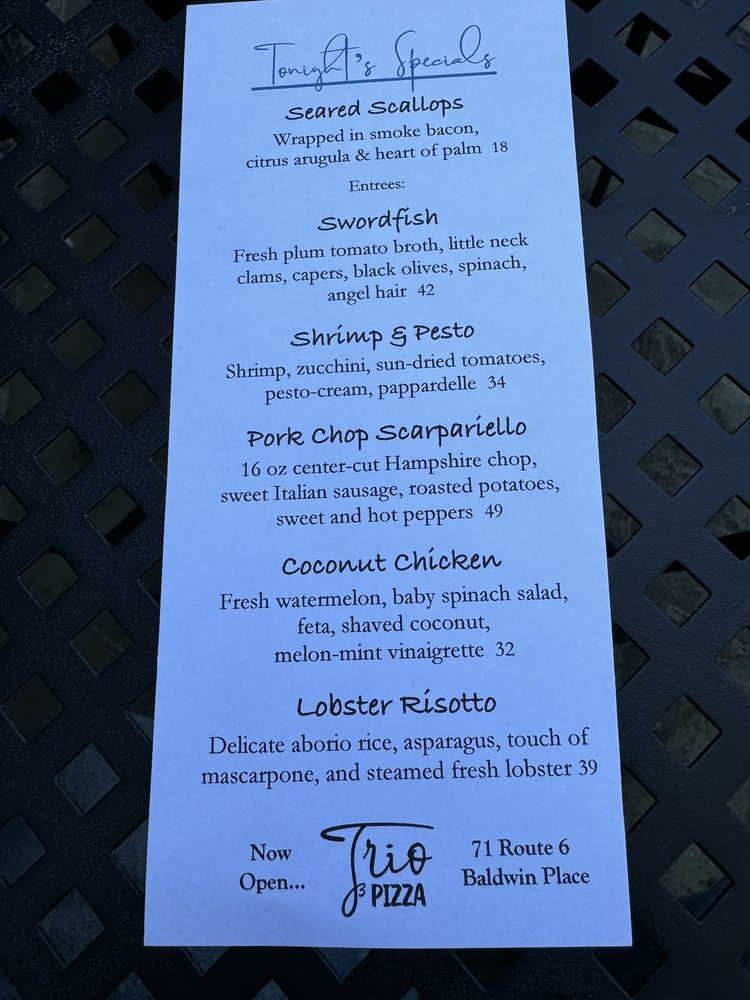 Tonight's Specials
Seared Scallops
Wrapped in smoke bacon,
citrus arugula & heart of palm 18
Entrees:
Swordfish
Fresh plum tomato broth, little neck
clams, capers, black olives, spinach,
angel hair 42
Shrimp & Pesto
Shrimp, zucchini, sun-dried tomatoes,
pesto-cream, pappardelle 34
Pork Chop Scarpariello
16 oz center-cut Hampshire chop,
sweet Italian sausage, roasted potatoes,
sweet and hot peppers 49
Coconut Chicken
Fresh watermelon, baby spinach salad,
feta, shaved coconut,
melon-mint vinaigrette 32
Lobster Risotto
Delicate aborio rice, asparagus, touch of
mascarpone, and steamed fresh lobster 39
Now
Open...
Trio
3 PIZZA
71 Route 6
Baldwin Place